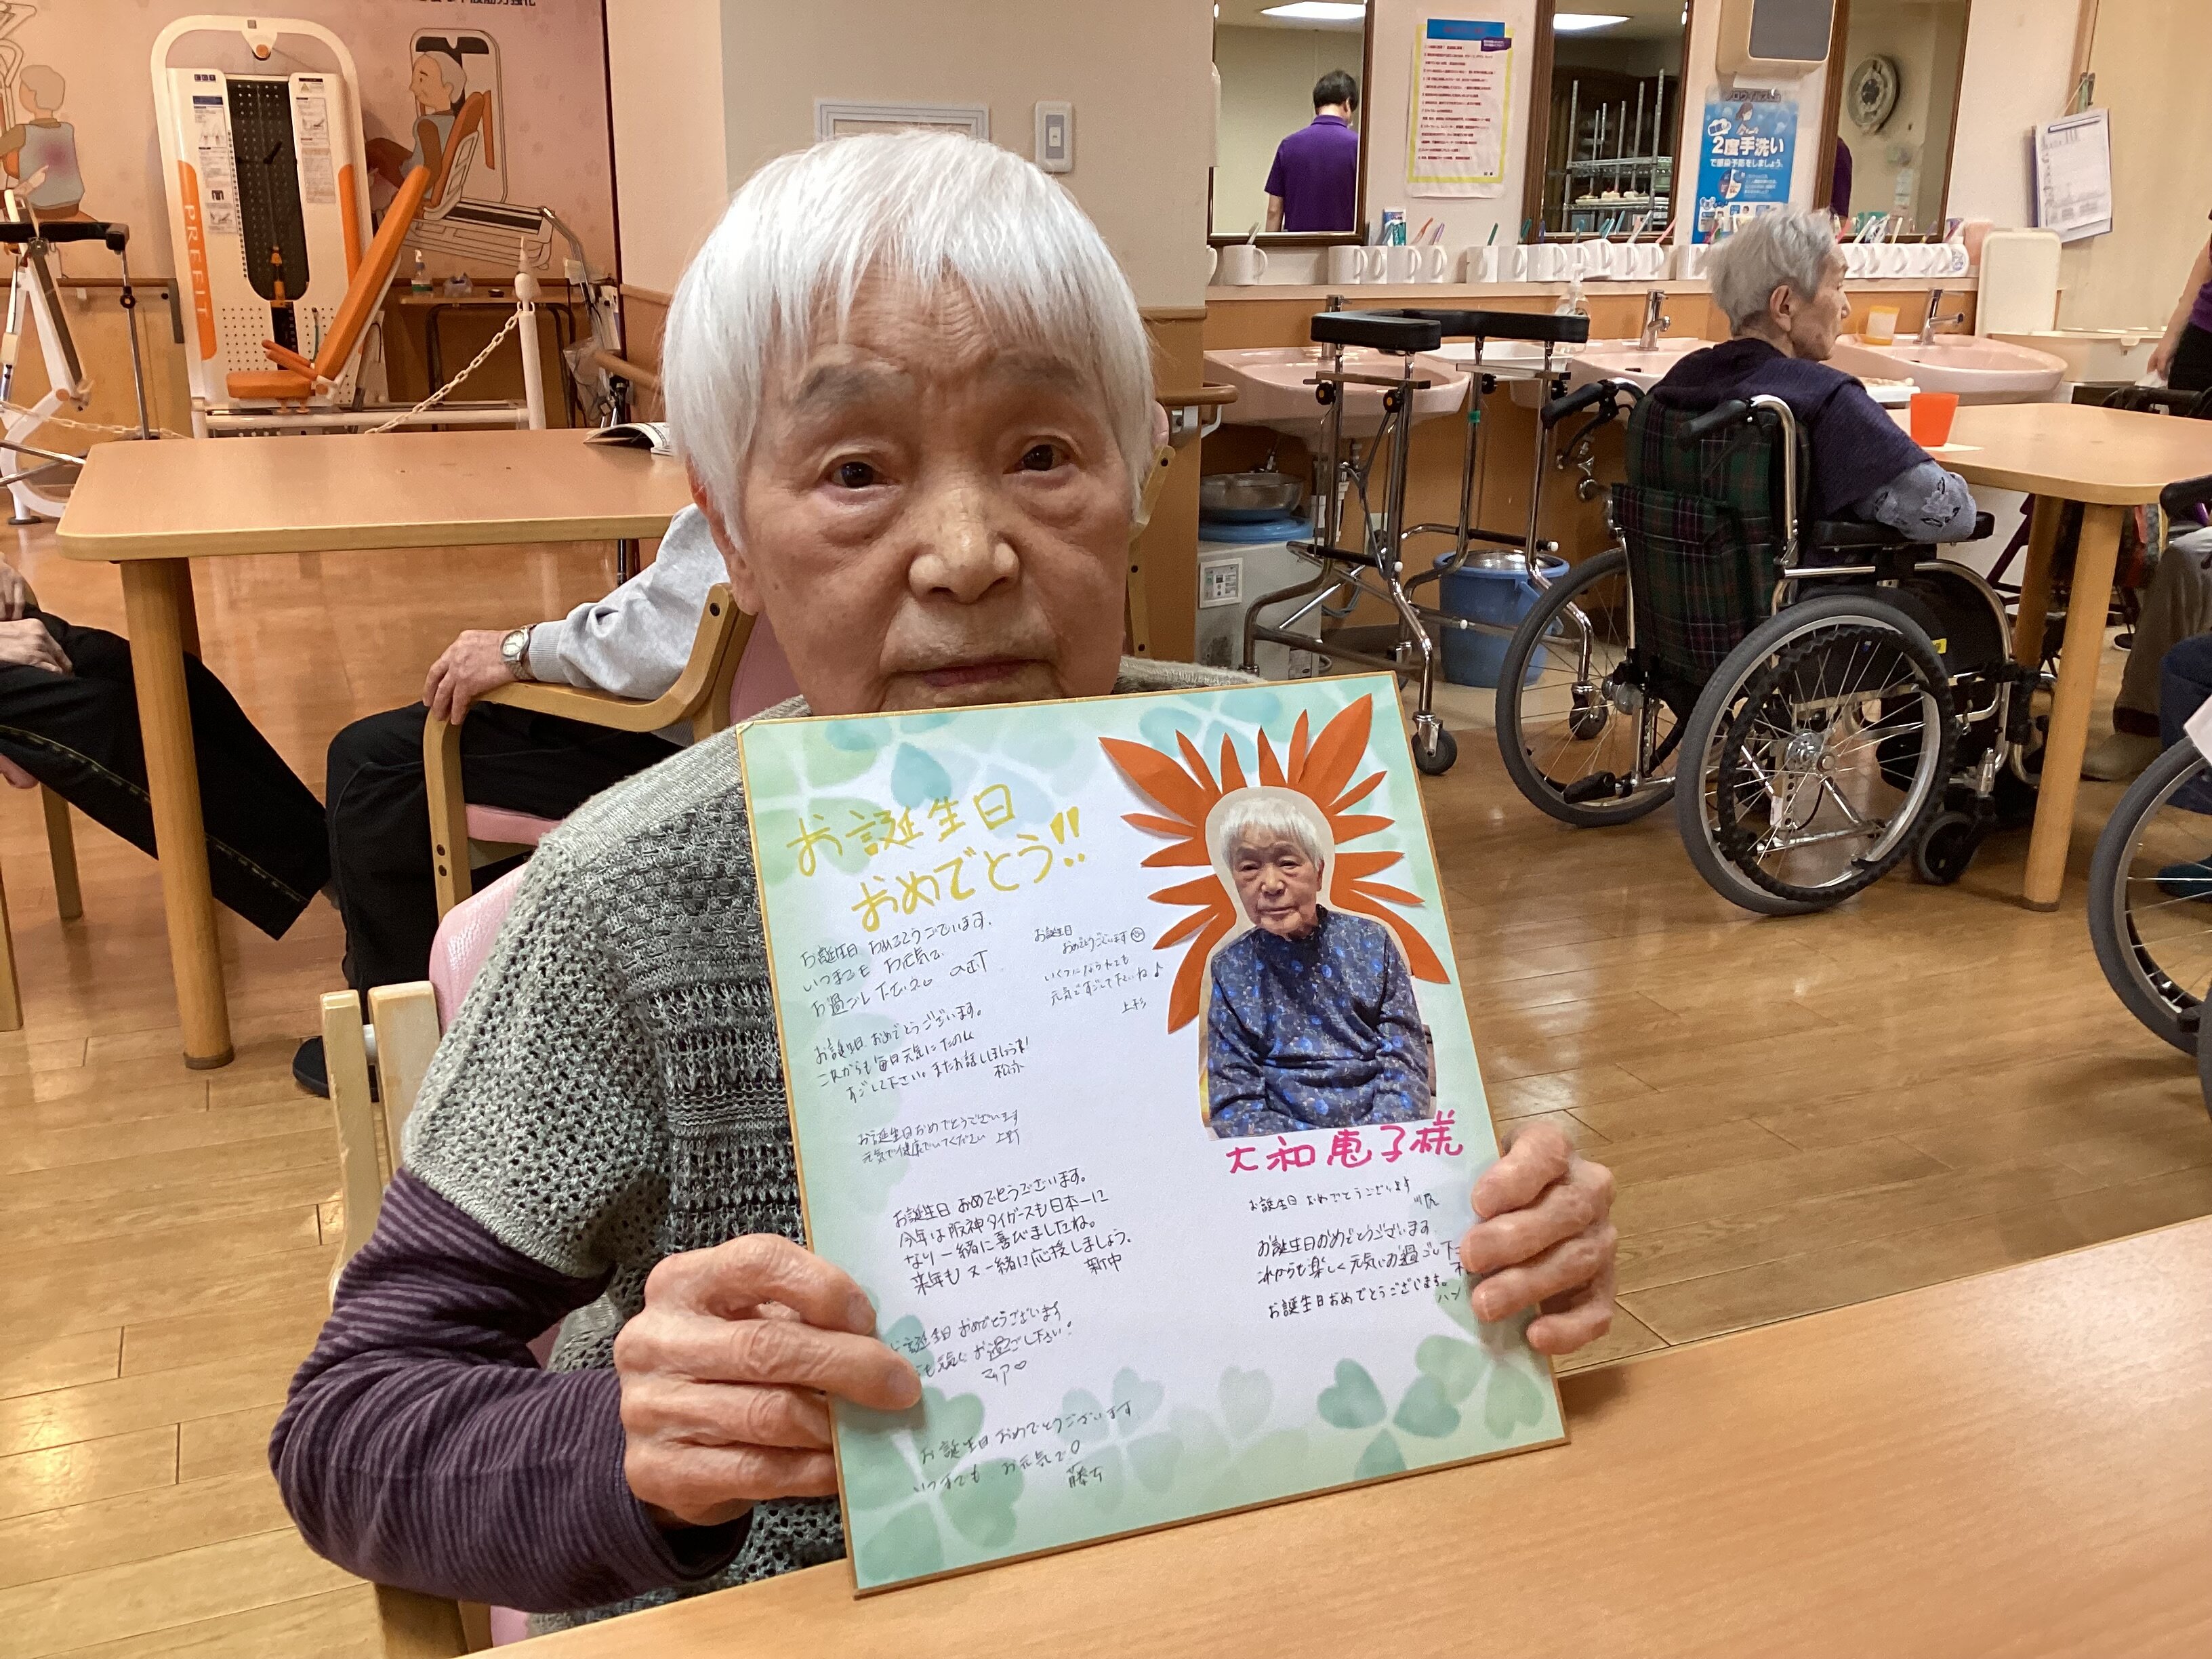 PREFIT
2度手洗い
で感染予防をしましょう。
お誕生日
おめでとう!!
お誕生日 おめでとうございます。
いつまでも お元気で
お過ごし下さい。
お誕生日 おめでとうございます。
これからも毎日元気にたのしく
すごして下さい。またお話しましょうネ!
お誕生日おめでとうございます
元気で健康でいてください 上野
お誕生日 おめでとうございます。
今年は阪神タイガースも日本一に
なり一緒に喜びましたね。
来年も又一緒に応援しましょう。
新中
お誕生日 おめでとうございます
お過ごし下さい!
マリア♡
お誕生日 おめでとうございます
いつまでも お元気で
お誕生日
おめでとうございます
いくつになられても
元気ですごして下さいね♪
上杉
大和恵子様
お誕生日 おめでとうございます
お誕生日おめでとうございます
これからも楽しく元気にお過ごし下
お誕生日おめでとうございます。
ハン